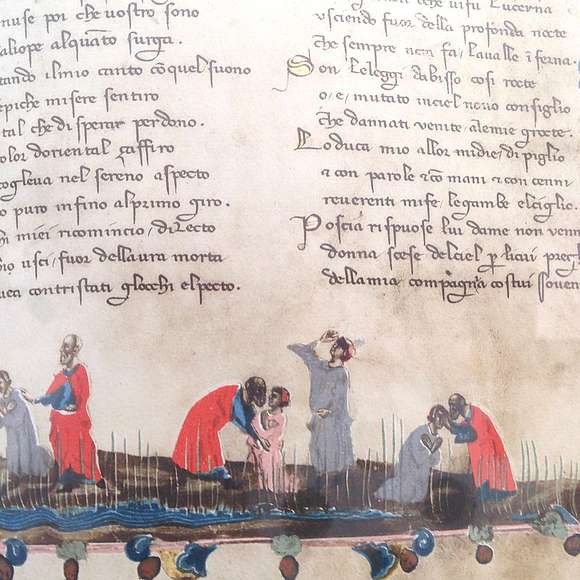 nuse poi che uostro sono
aliope alquãto surga.
tando ilmio canto cõquel suono
epiche misere sentiro
tal che di sperar perdono.
olor doriental çaffiro
cogleua nel sereno aspecto
o puro infino alprimo giro.
hi miei ricomincio, diLecto
hio usci, fuor dellaura morta
uea contristati glocchi elpecto.
che uifu Lucerna
usciendo fuor della profonda nocte
che sempre nera fa, laualle ĩferna.
Son leleggi dabisso cosi rocte
o, e, mutato inciel nouo consiglio
che dannati venite, alemie grocte.
Loduca mio allor midie, di piglio
& con parole & cõ mani & con cenni
reuerenti mife, legambe elciglio.
Poscia rispuose lui dame non venn
donna scese delciel p licui pregh
dellamia compagna costui souen